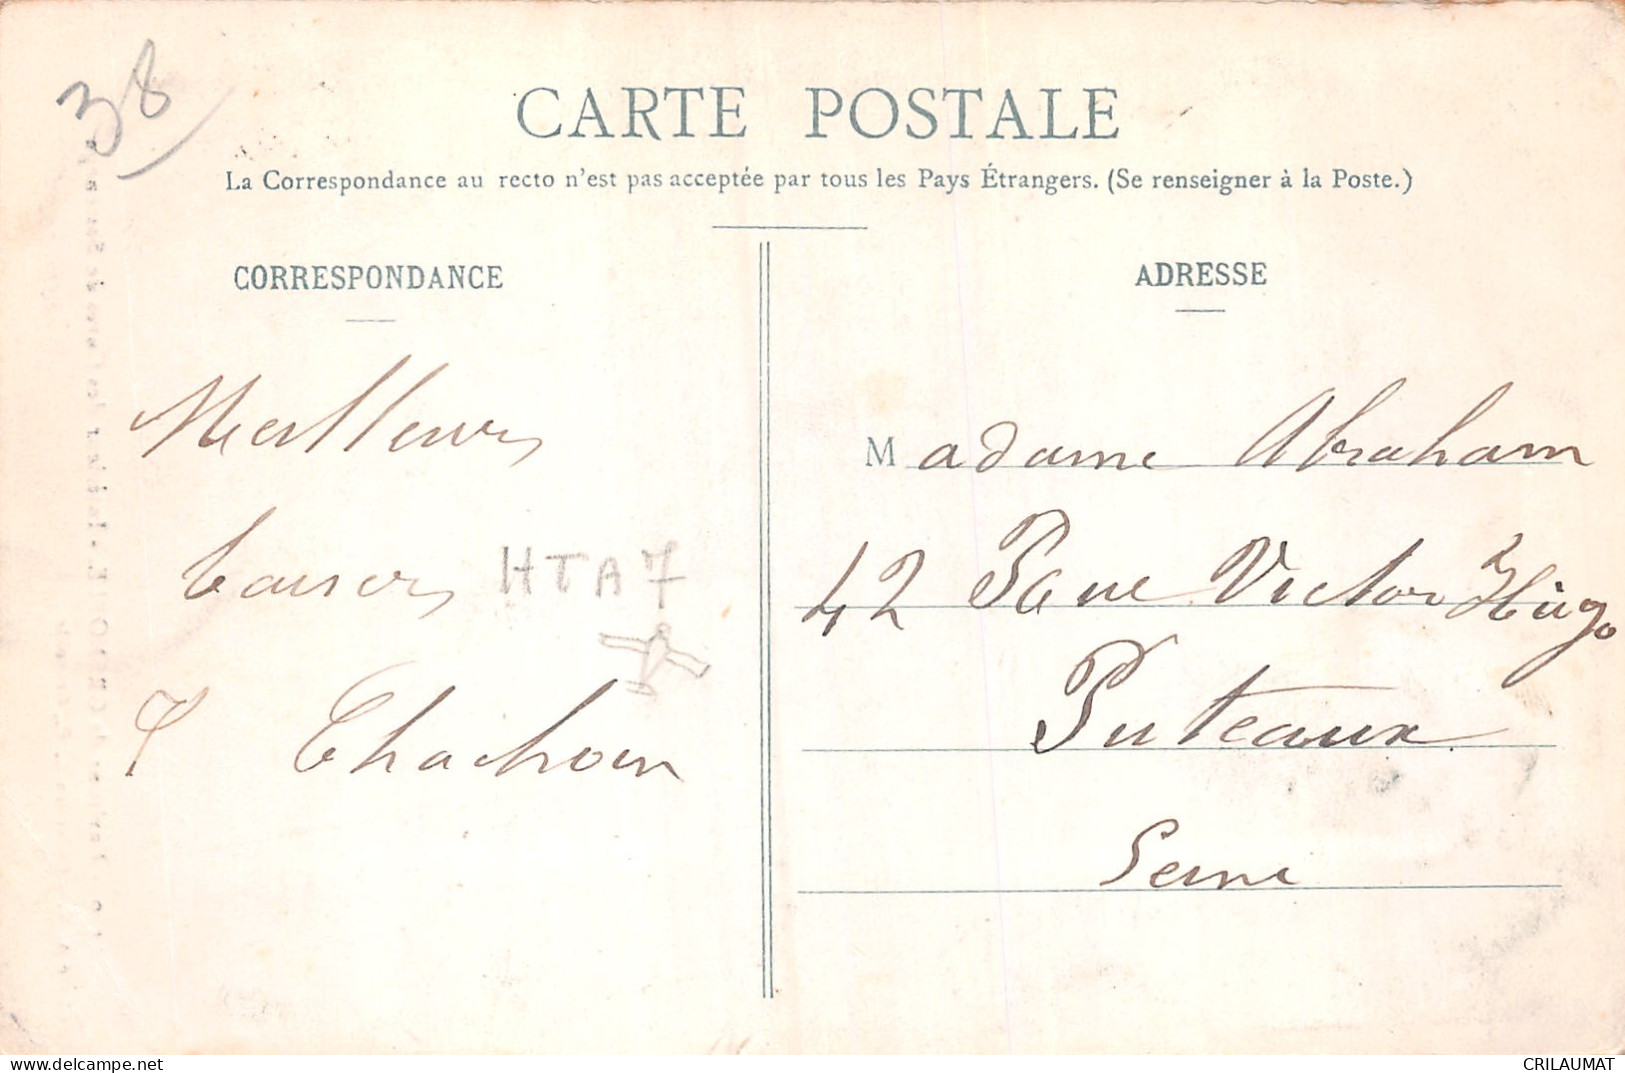 38
CARTE POSTALE
La Correspondance au recto n'est pas acceptée par tous les Pays Étrangers. (Se renseigner à la Poste.)
CORRESPONDANCE
Meilleurs
baisers
HTA7
Thachoin
ADRESSE
Madame Abraham
42 Rue Victor Hugo
Puteaux
Seine
www.delcampe.net
CRILAUMAT